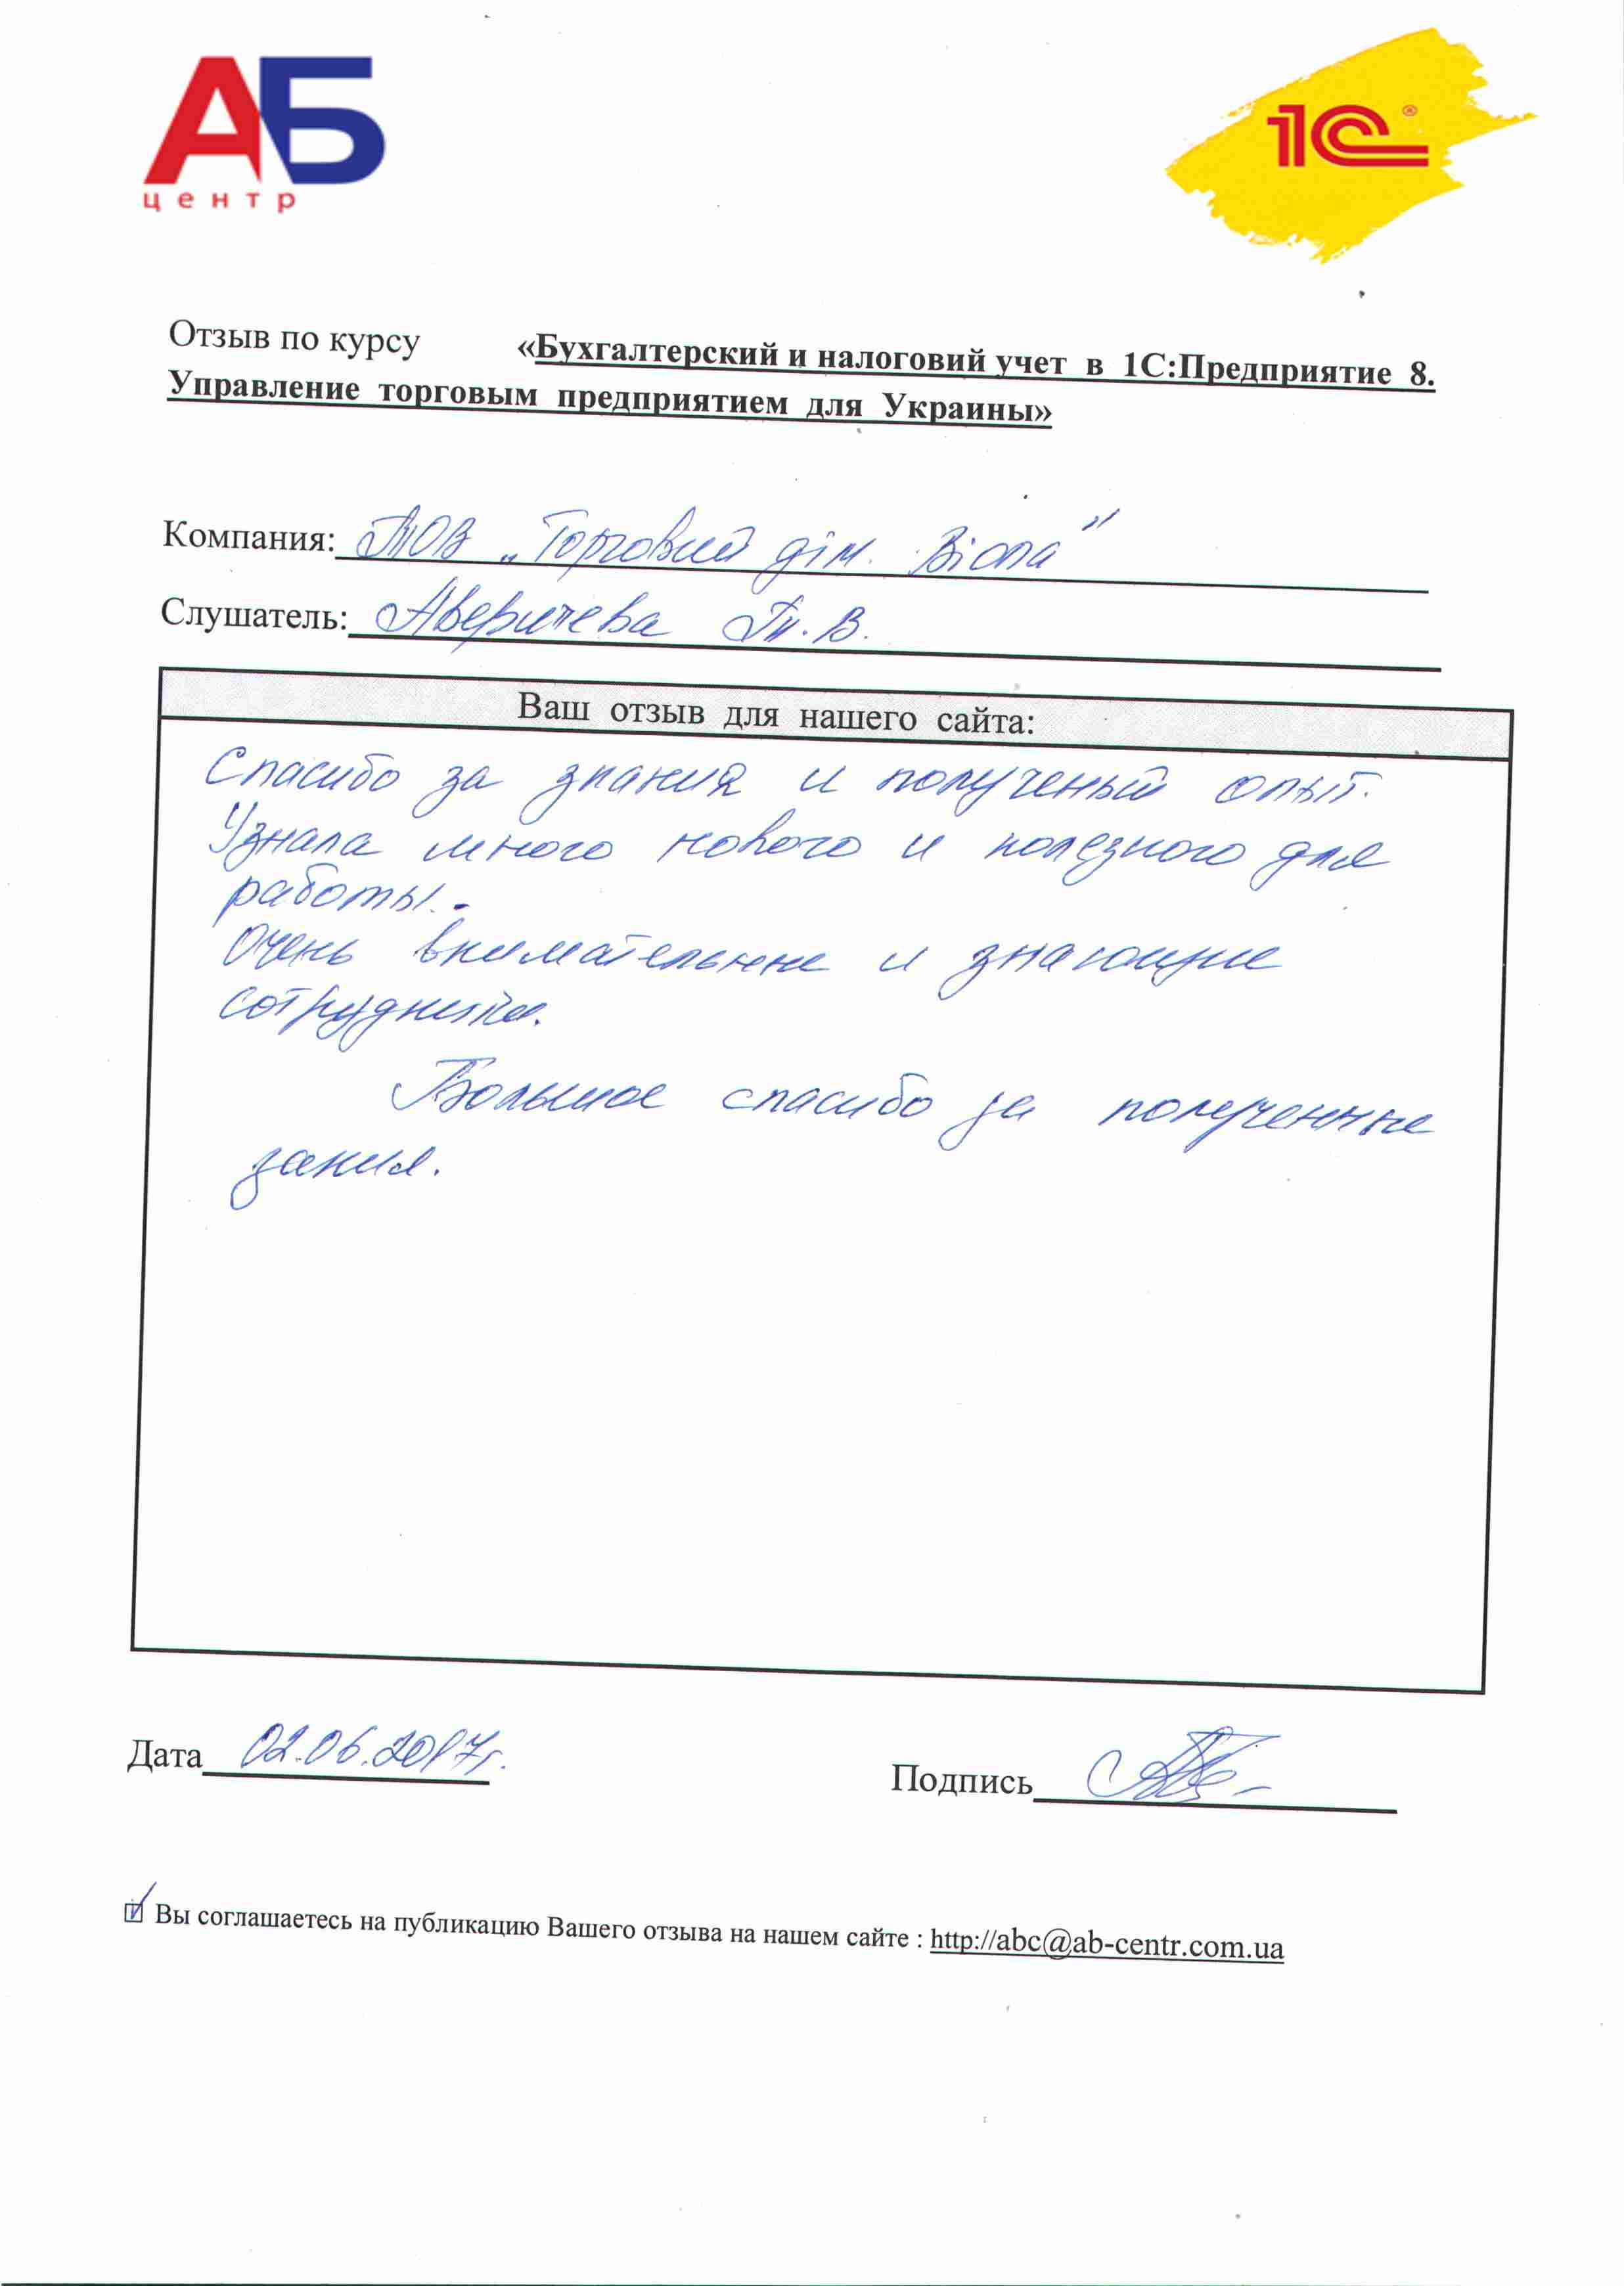 АБ
центр
1С®
Отзыв по курсу «Бухгалтерский и налоговий учет в 1С:Предприятие 8.
Управление торговым предприятием для Украины»
Компания: ТОВ „Торговий дім. Віола"
Слушатель: Аверичева Т.В.
Ваш отзыв для нашего сайта:
Спасибо за знания и полученый опыт.
Узнала много нового и полезного для
работы.
Очень внимательные и знающие
сотрудники.
Большое спасибо за полученные
зания.
Дата 02.06.2017г.
Подпись
Вы соглашаетесь на публикацию Вашего отзыва на нашем сайте : http://abc@ab-centr.com.ua